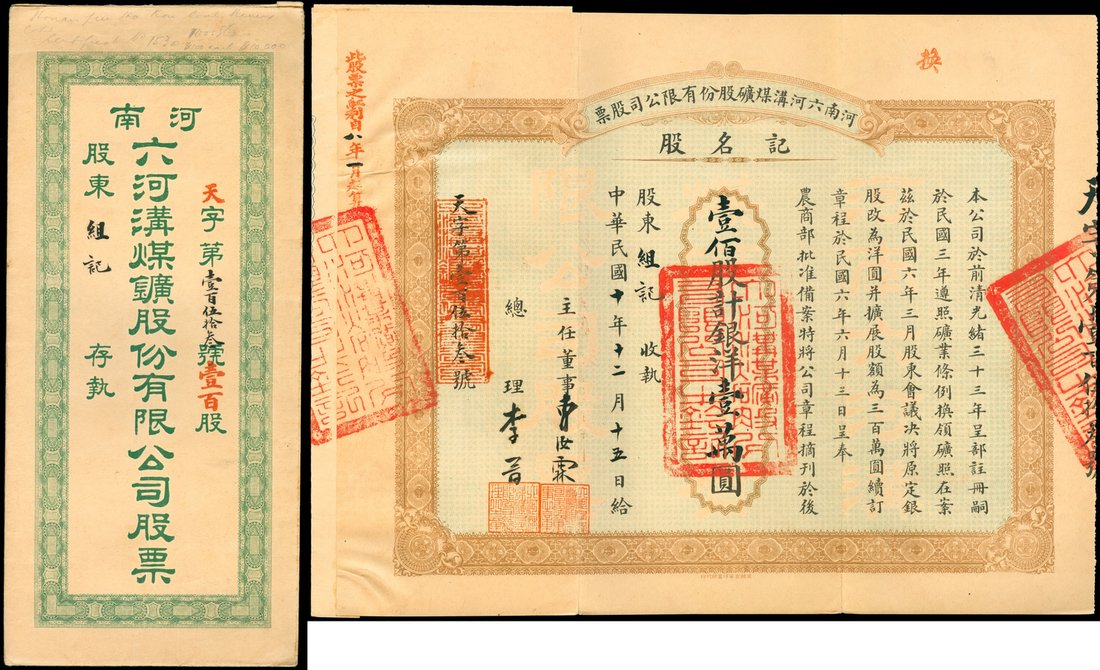 河南
六河溝煤鑛股份有限公司股票
天字第壹百伍拾叁號壹百股
股東 組記 存執
換
河南六河溝煤礦股份有限公司股票
記名股
本公司於前清光緒三十三年呈部註冊嗣
於民國三年遵照礦業條例換領礦照在案
茲於民國六年三月股東會議決將原定銀
股改為洋圓并擴展股額為三百萬圓續訂
章程於民國六年六月十三日呈奉
農商部批准備案特將公司章程摘刊於後
壹佰股計銀洋壹萬圓
股東 組記 收執
中華民國十年十二月十五日給
主任董事
總理 李晉
天字第壹百伍拾叁號
此股票之
自八年一月